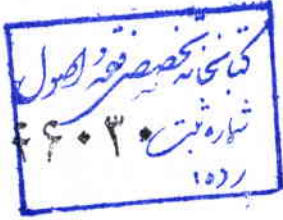 کتابخانه تخصصی فقه و اصول
شماره ثبت ۴۶۰۳۰
رده: